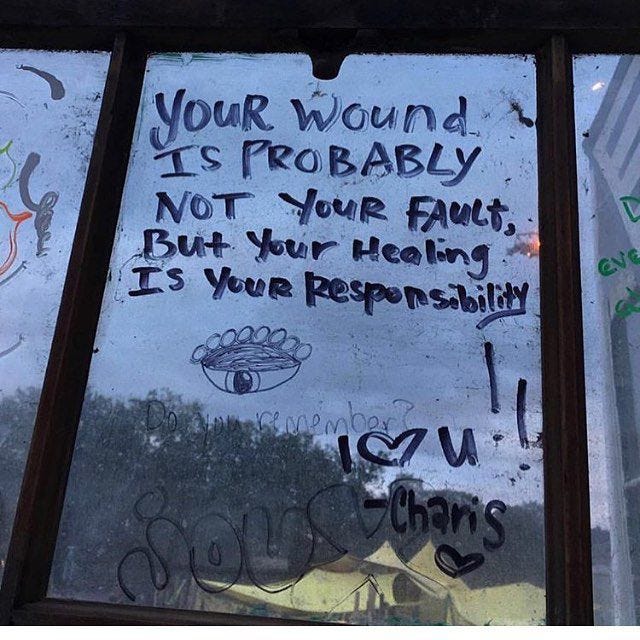 YOUR Wound
IS PROBABLY
NOT YOUR FAULT,
But Your Healing
IS YOUR Responsibility
!!
Do you remember?
I ♡ U
-Charis
♡
eve